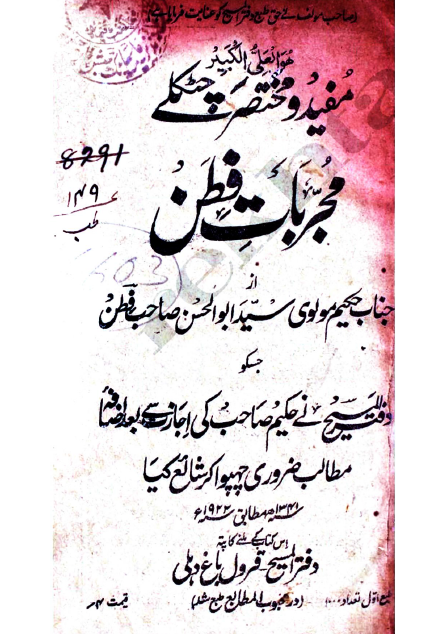 (صاحب مؤلف نے حق طبع دفتر المسیح کو عنایت فرمایا ہے)
ھو العلی الکبیر
مفید و مختصر چٹکلے
8291
۱۴۹
طب
مجربات فطن
(603)
از
جناب حکیم مولوی سید ابو الحسن صاحب فطن
جسکو
دفتر المسیح نے حکیم صاحب کی اجازت سے بعد اضافہ
مطالب ضروری چھپوا کر شائع کیا
سنہ ۱۳۴۱ھ مطابق سنہ ۱۹۲۲ء
اس کتاب کے ملنے کا پتہ
دفتر المسیح۔ قرول باغ دہلی
طبع اول تعداد ۱۰۰۰ (در محبوب المطابع طبع شد) قیمت ۴؍